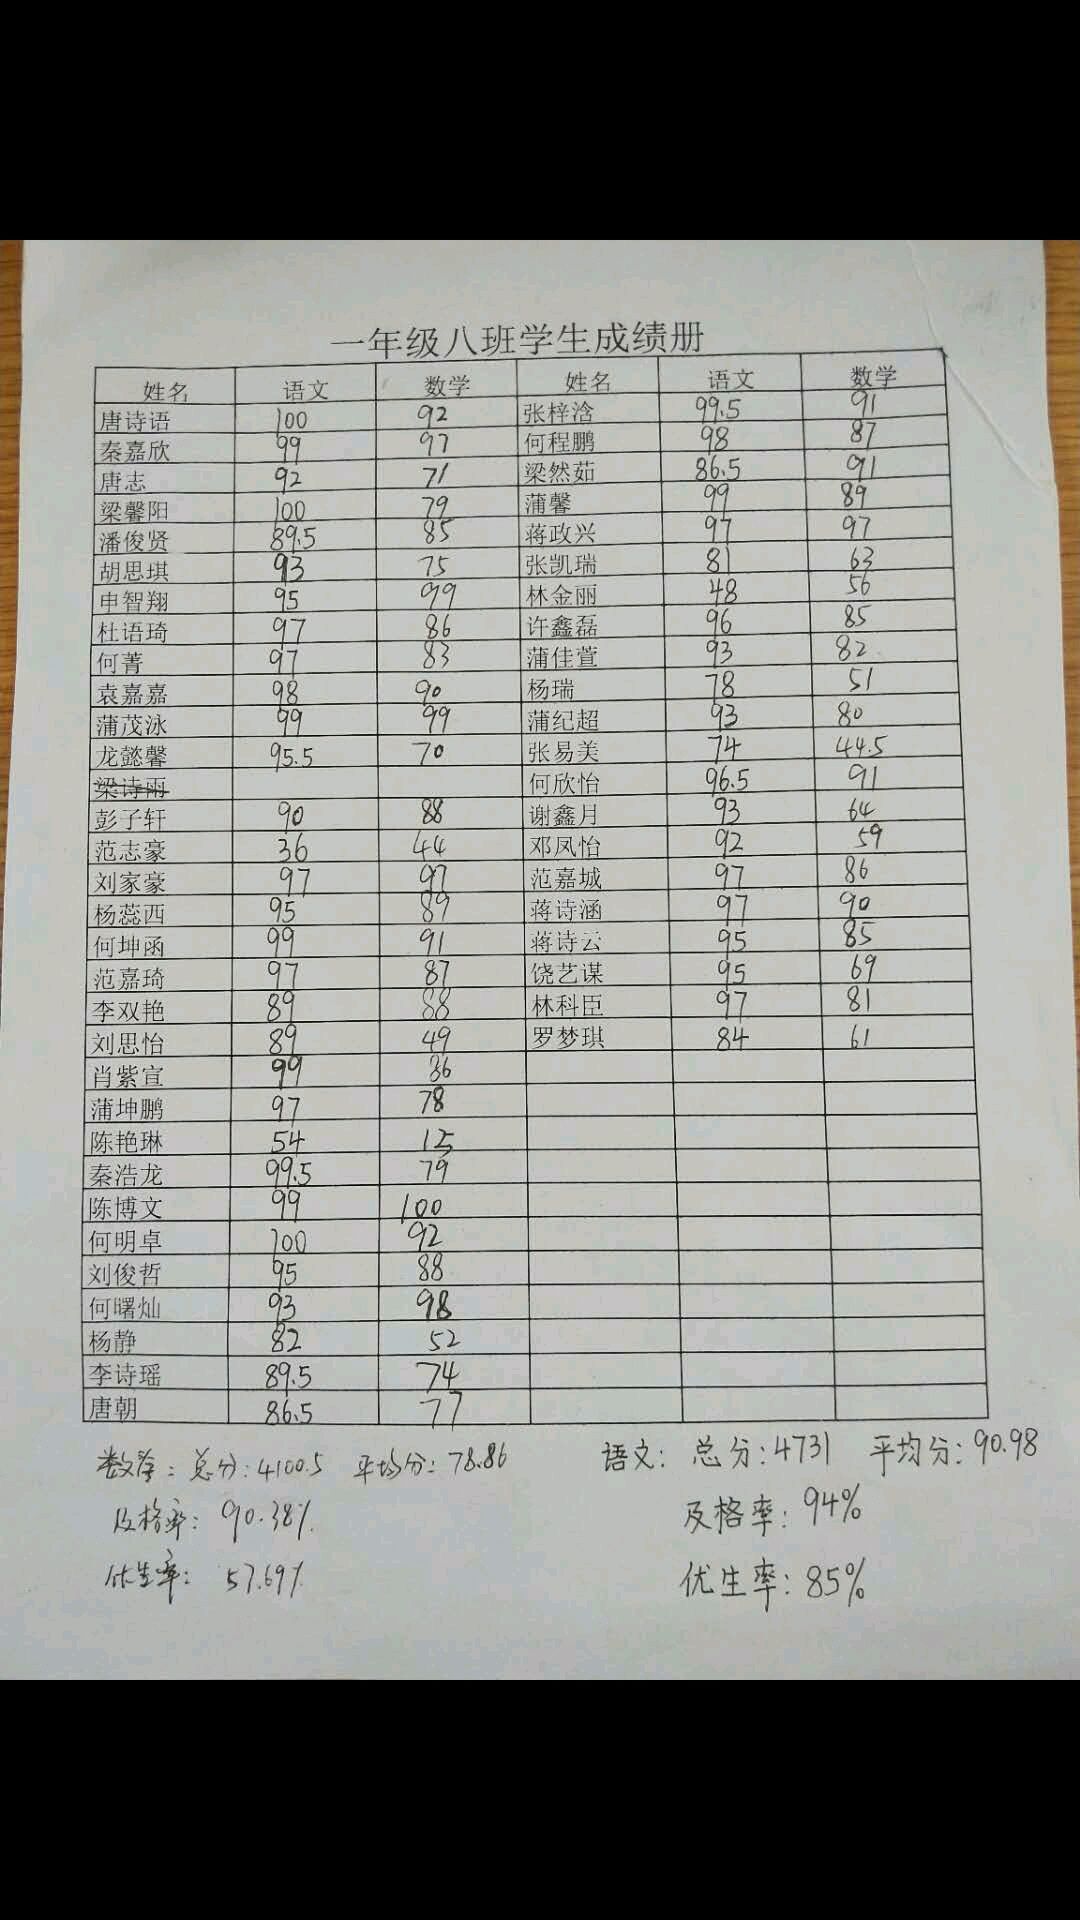 一年级八班学生成绩册
姓名 语文 数学 姓名 语文 数学
唐诗语 100 92 张梓浛 99.5 91
秦嘉欣 99 97 何程鹏 98 87
唐志 92 71 梁然茹 86.5 91
梁馨阳 100 79 蒲馨 99 89
潘俊贤 89.5 85 蒋政兴 97 97
胡思琪 93 75 张凯瑞 81 63
申智翔 95 99 林金丽 48 56
杜语琦 97 86 许鑫磊 96 85
何菁 97 83 蒲佳萱 93 82
袁嘉嘉 98 90 杨瑞 78 51
蒲茂泳 99 99 蒲纪超 93 80
龙懿馨 95.5 70 张易美 74 44.5
梁诗雨 何欣怡 96.5 91
彭子轩 90 88 谢鑫月 93 64
范志豪 36 44 邓凤怡 92 59
刘家豪 97 97 范嘉城 97 86
杨蕊西 95 89 蒋诗涵 97 90
何坤函 99 91 蒋诗云 95 85
范嘉琦 97 87 饶艺谋 95 69
李双艳 89 88 林科臣 97 81
刘思怡 89 49 罗梦琪 84 61
肖紫宣 99 86
蒲坤鹏 97 78
陈艳琳 54 12
秦浩龙 99.5 79
陈博文 99 100
何明卓 100 92
刘俊哲 95 88
何曙灿 93 98
杨静 82 52
李诗瑶 89.5 74
唐朝 86.5 77
数学：总分：4100.5 平均分：78.86 语文：总分：4731 平均分：90.98
及格率：90.38% 及格率：94%
优生率：57.69% 优生率：85%